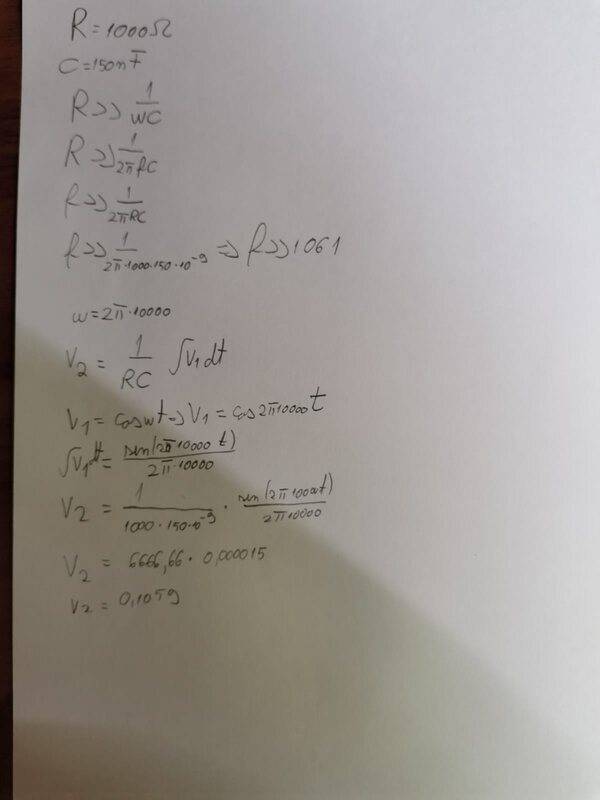 R = 1000Ω
C = 150nF
R >> 1/WC
R >> 1/2πfC
R >> 1/2πRC
R >> 1/2π·1000·150·10⁻⁹ => R >> 1061
ω = 2π·10000
V₂ = 1/RC ∫V₁dt
V₁ = cosωt -> V₁ = cos2π10000t
∫V₁dt = sin(2π·10000t)/2π·10000
V₂ = 1/1000·150·10⁻⁹ · sin(2π10000t)/2π10000
V₂ = 6666,66 · 0,000015
V₂ = 0,1059